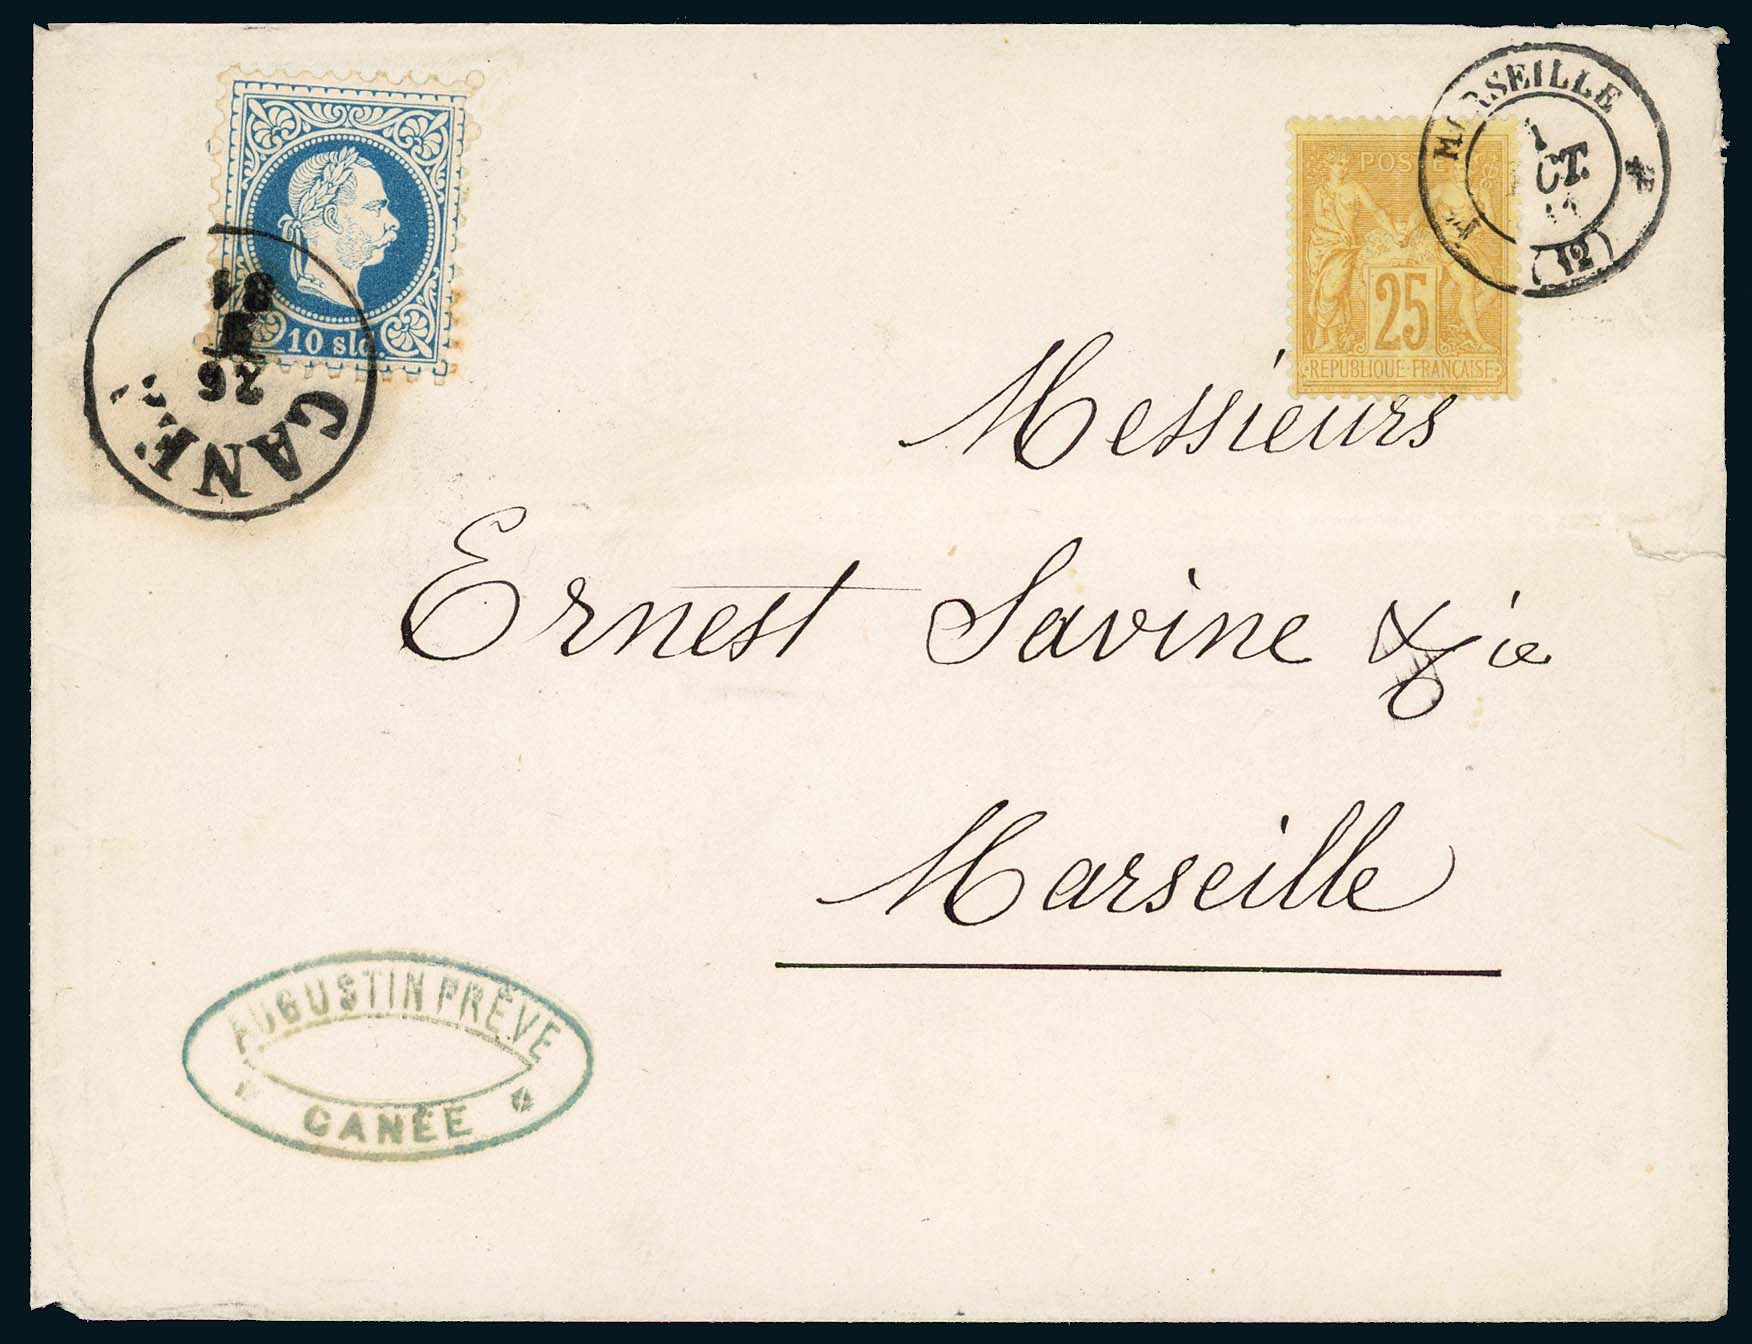 10 sld.
CANE
26
81
MARSEILLE
1
OCT.
(12)
POSTE
25
REPUBLIQUE FRANÇAISE
Messieurs
Ernest Savine & Cie
Marseille
AUGUSTIN PRÊVE
CANÉE